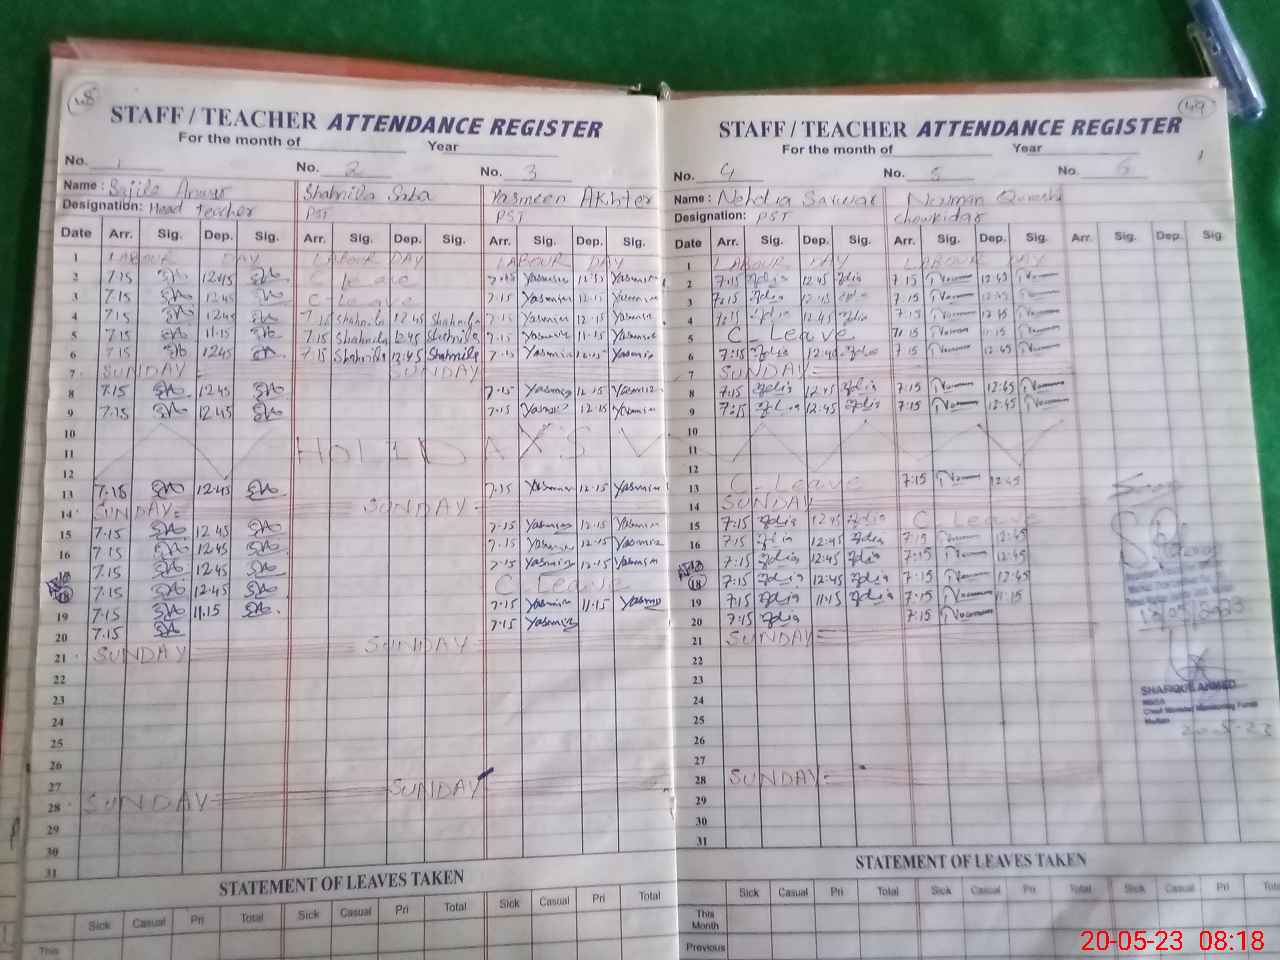 48
STAFF / TEACHER ATTENDANCE REGISTER
For the month of Year
No. 1 No. 2 No. 3
Name : Sajila Shahnila Saba Yasmeen Akhter
Designation: Head teacher PST PST
Date Arr. Sig. Dep. Sig. Arr. Sig. Dep. Sig. Arr. Sig. Dep. Sig.
1 LABOUR DAY LABOUR DAY LABOUR DAY
2 7.15 12.45 C leave 7.15 Yasmin 12.15 Yasmin
3 7.15 12.45 C-Leave 7.15 Yasmin 12.15 Yasmin
4 7.15 12.45 7.15 Shahnila 12.45 Shahnila 7.15 Yasmin 12.15 Yasmin
5 7.15 11.15 7.15 Shahnila 12.45 Shahnila 7.15 Yasmin 12.15 Yasmin
6 7.15 12.45 7.15 Shahnila 12:45 Shahnila 7.15 Yasmin 12.15 Yasmin
7 SUNDAY SUNDAY
8 7.15 12.45 7.15 Yasmin 12.15 Yasmin
9 7.15 12.45 7.15 Yasmin 12.15 Yasmin
10
11 HOLIDAY'S
12
13 7.15 12.45 7.15 Yasmin 12.15 Yasmin
14 SUNDAY= SUNDAY
15 7.15 12.45 7.15 Yasmin 12.15 Yasmin
16 7.15 12.45 7.15 Yasmin 12.15 Yasmin
7.15 12.45 7.15 Yasmin 12.15 Yasmin
18 7.15 12.45 C Leave
19 7.15 11.15 7.15 Yasmin 11.15 Yasmin
20 7.15 7.15 Yasmin
21 SUNDAY SUNDAY
22
23
24
25
26
27
28 SUNDAY SUNDAY
29
30
31
STATEMENT OF LEAVES TAKEN
Sick Casual Pri Total Sick Casual Pri Total Sick Casual Pri Total
This
49
STAFF / TEACHER ATTENDANCE REGISTER
For the month of Year
No. 4 No. 5 No. 6
Name : Sarwar Noman Qureshi
Designation: PST Chowkidar
Date Arr. Sig. Dep. Sig. Arr. Sig. Dep. Sig. Arr. Sig. Dep. Sig.
1 LABOUR DAY LABOUR DAY
2 7:15 12:45 7:15 12:45
3 7:15 12:45 7:15 12:45
4 7:15 12:45 7:15 12:45
5 C - Leave 7:15 11:15
6 7:15 12:45 7:15 12:45
7 SUNDAY
8 7:15 12:45 7:15 12:45
9 7:15 12:45 7:15 12:45
10
11
12
13 C - Leave 7:15 12:45
14 SUNDAY
15 7:15 12:45 C Leave
16 7:15 12:45 7:15 12:45
7:15 12:45 7:15 12:45
18 7:15 12:45 7:15 12:45
19 7:15 11:15 7:15 11:15
20 7:15 7:15
21 SUNDAY
22
23
24
25
26
27
28 SUNDAY
29
30
31
SHAFIQUE AHMED
Chief Minister Monitoring Force
Multan
STATEMENT OF LEAVES TAKEN
Sick Casual Pri Total Sick Casual Pri Total Sick Casual Pri
This Month
Previous
20-05-23 08:18